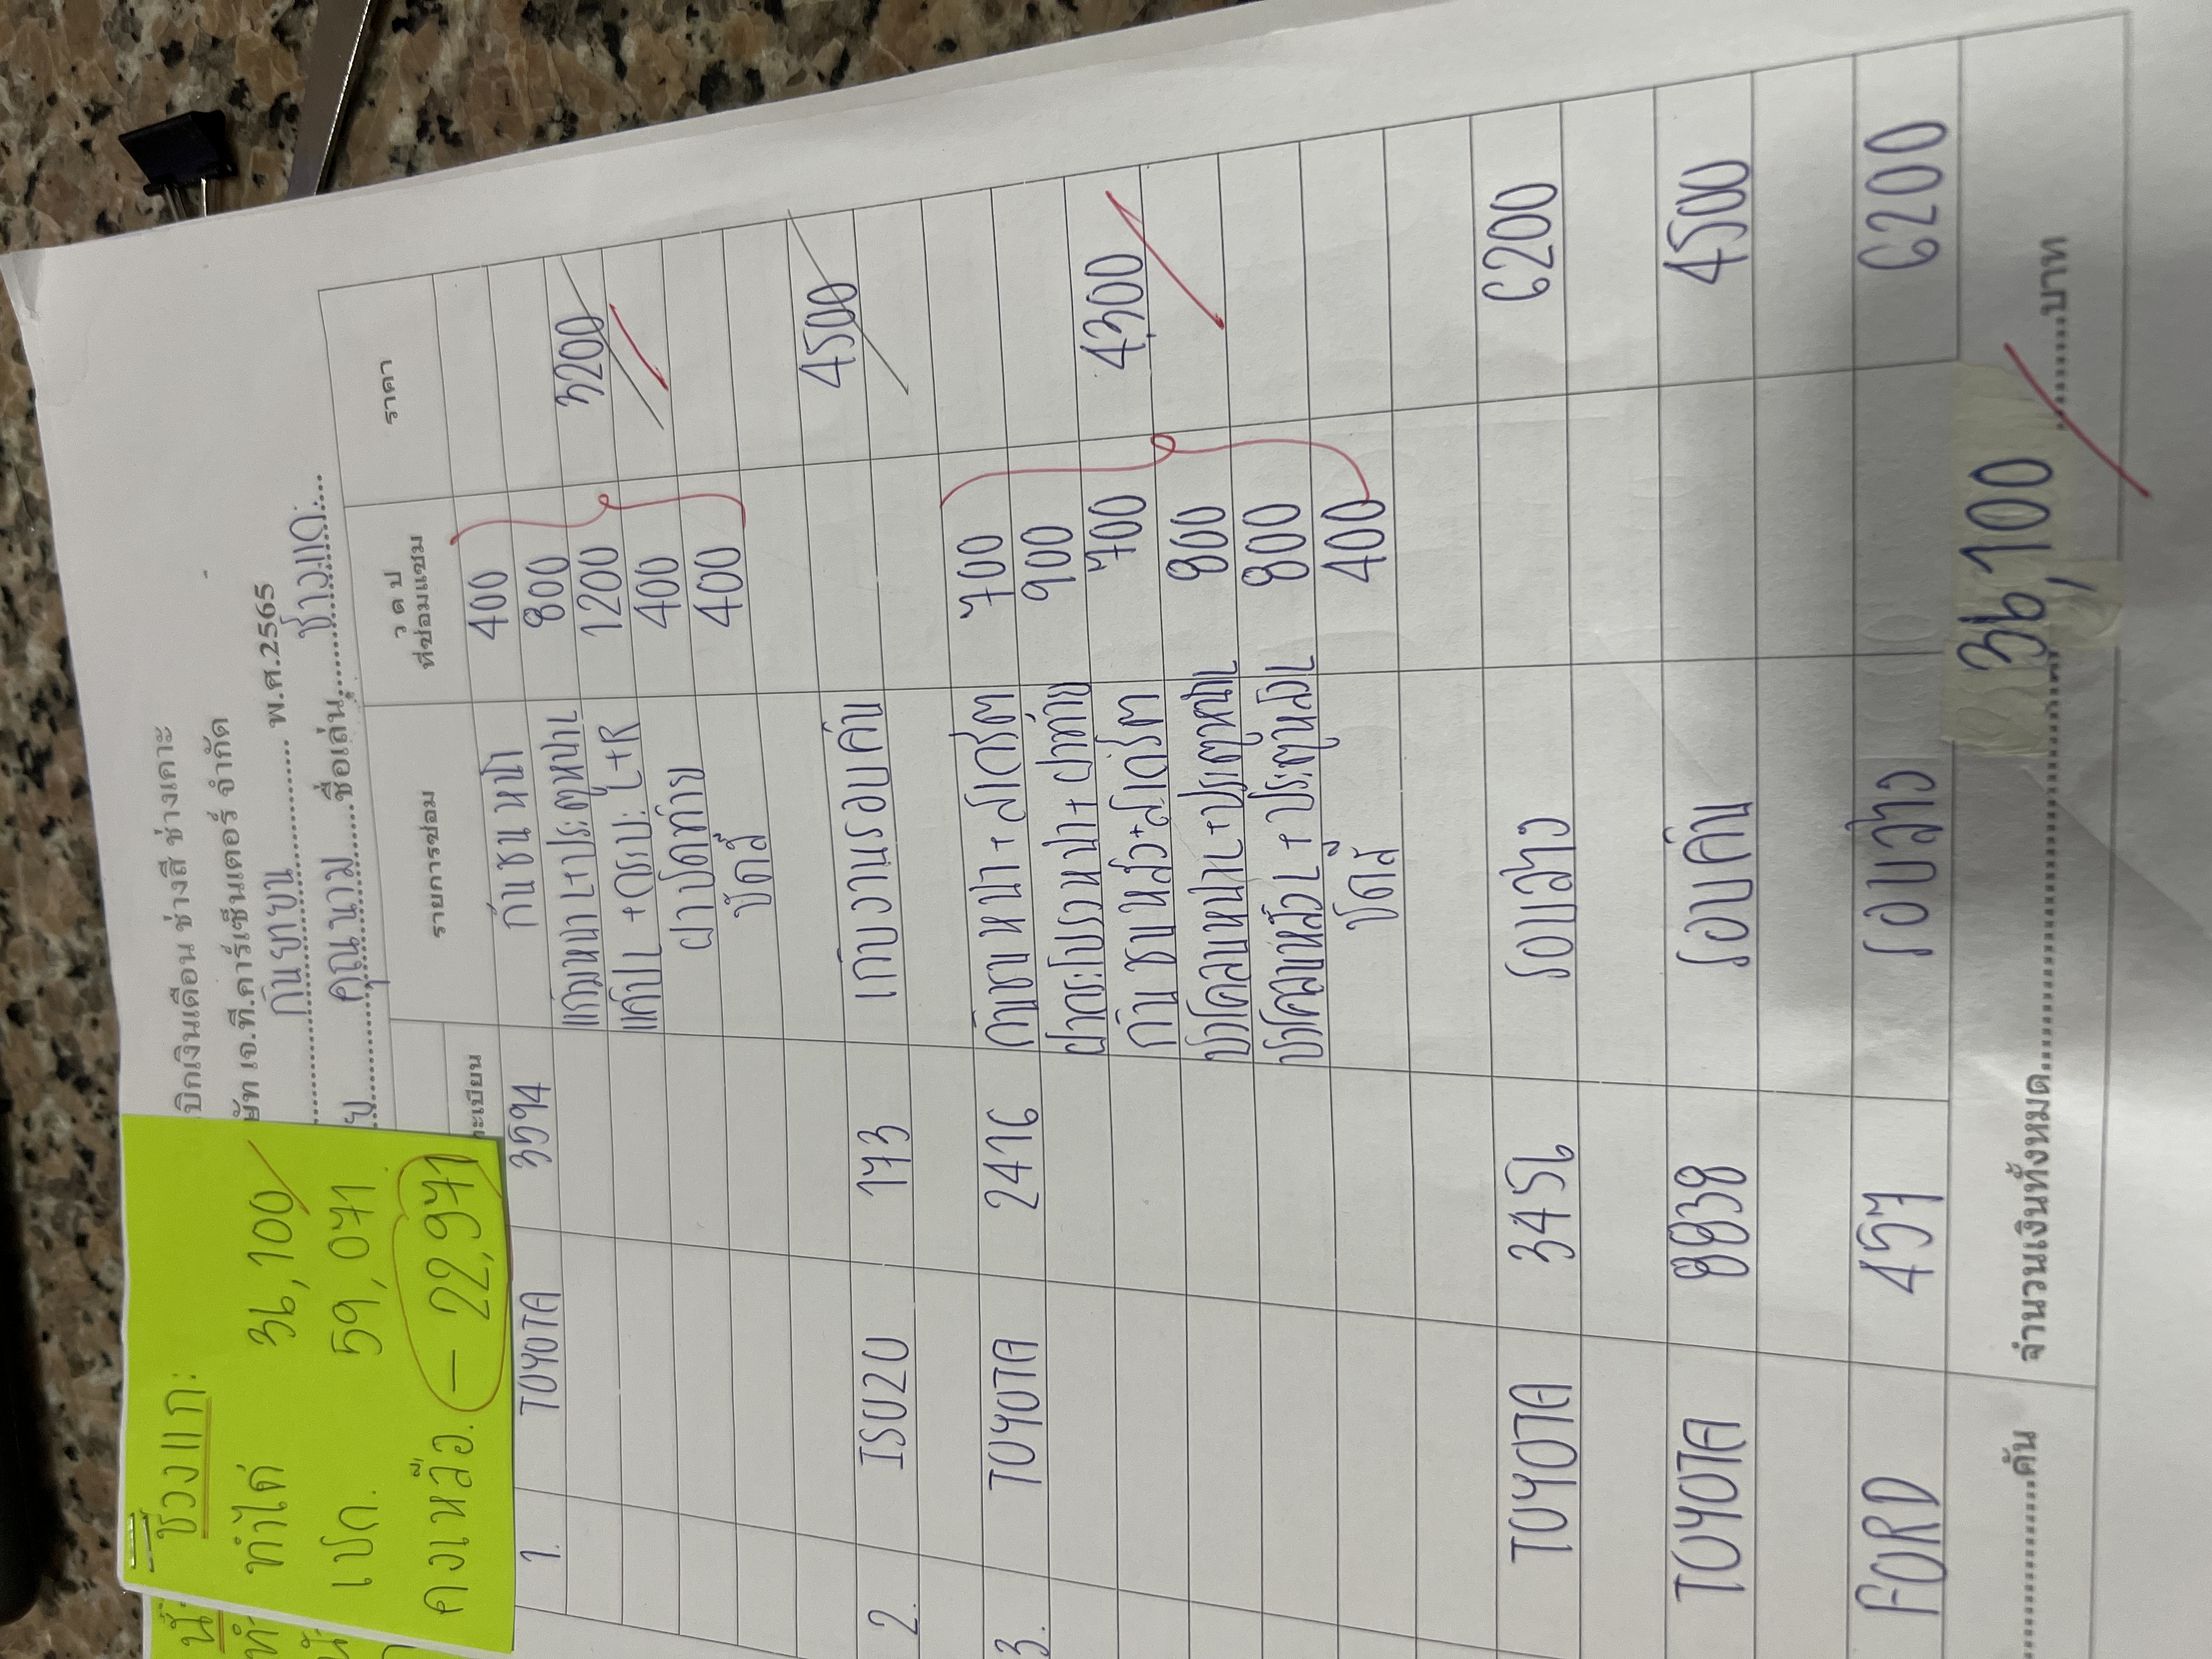 ช่างแกะ
ทำได้ 36,100
เบิก. 59,071
คงเหลือ. - 22,971
บิกเงินเดือน ช่างสี ช่างเคาะ
ษัท เจ.ที.คาร์เซ็นเตอร์ จำกัด
กันยายน พ.ศ.2565
คุณนาม ชื่อเล่น ช่างแกะ
ทะเบียน รายการซ่อม ว ด ป ที่ซ่อมแซม ราคา
1. TOYOTA 3594 กันชนหน้า 400
แก้มหน้าL+ประตูหน้าL 800
แค๊ปL+กระบะ L+R 1200 3200
ฝาปิดท้าย 400
ขัดสี 400
4500
2. ISUZU 173 เก็บงานรอบคัน
3. TOYOTA 2416 กันชนหน้า+สเกิร์ต 700
ฝากระโปรงหน้า+ฝาท้าย 900
กันชนหลัง+สเกิร์ต 700 4300
บังโคลนหน้าL+ประตูหน้าL 800
บังโคลนหลังL+ประตูหลังL 800
ขัดสี 400
TOYOTA 3456 รอบล่าง 6200
TOYOTA 8838 รอบคัน 4500
FORD 457 รอบล่าง 6200
คัน จำนวนเงินทั้งหมด 36,100 บาท